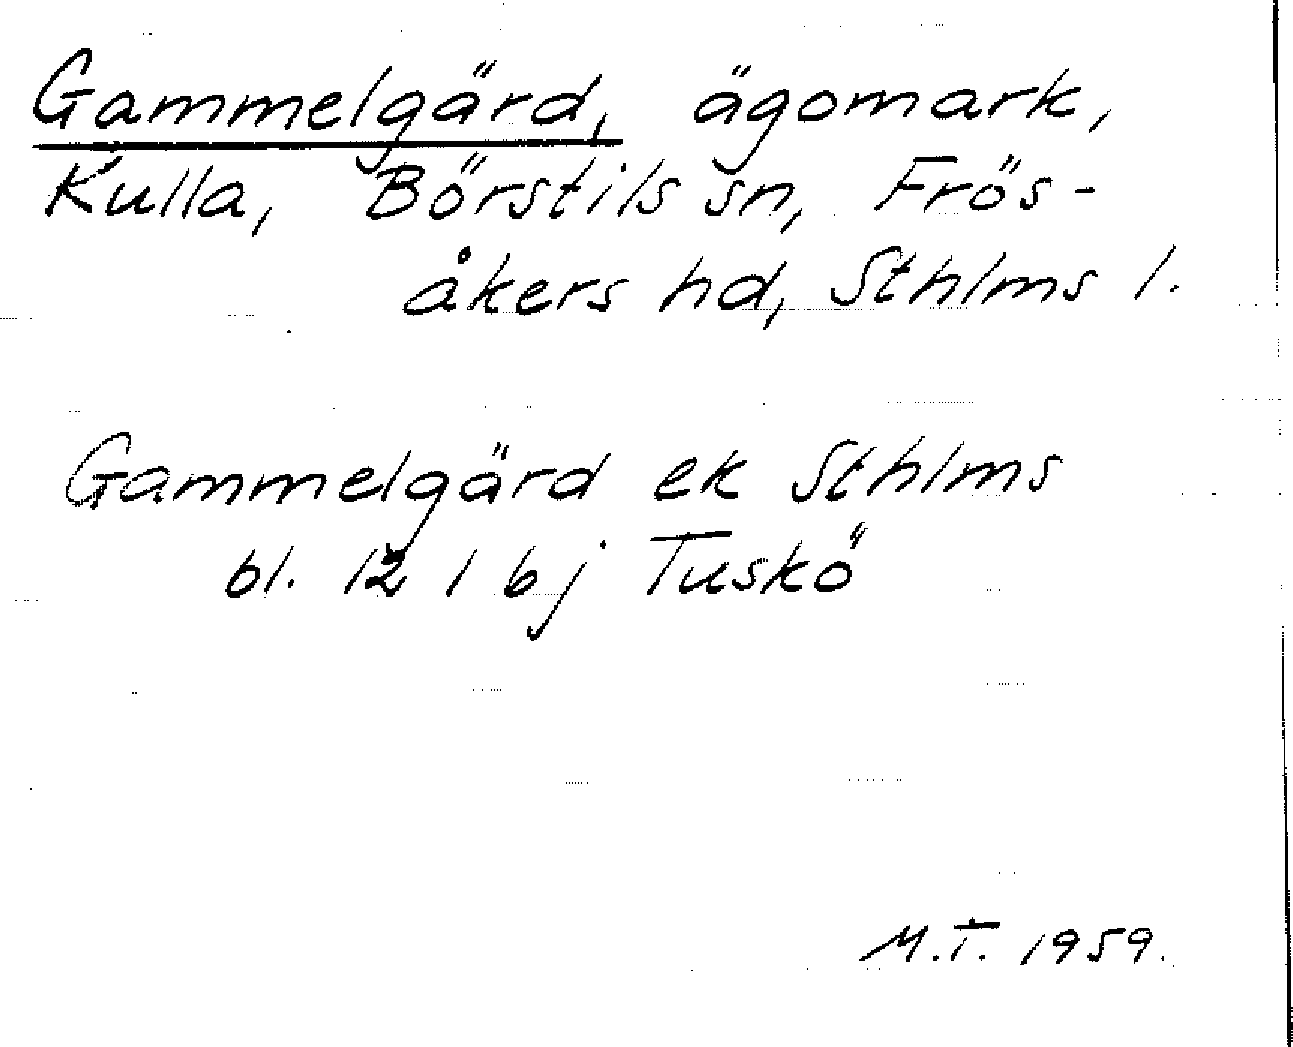 Gammelgärd, ägomark,
Kulla, Börstils sn, Frös-
åkers hd, Sthlms l.
Gammelgärd ek Sthlms
bl. 12 1 bj Tuskö
M.T. 1959.